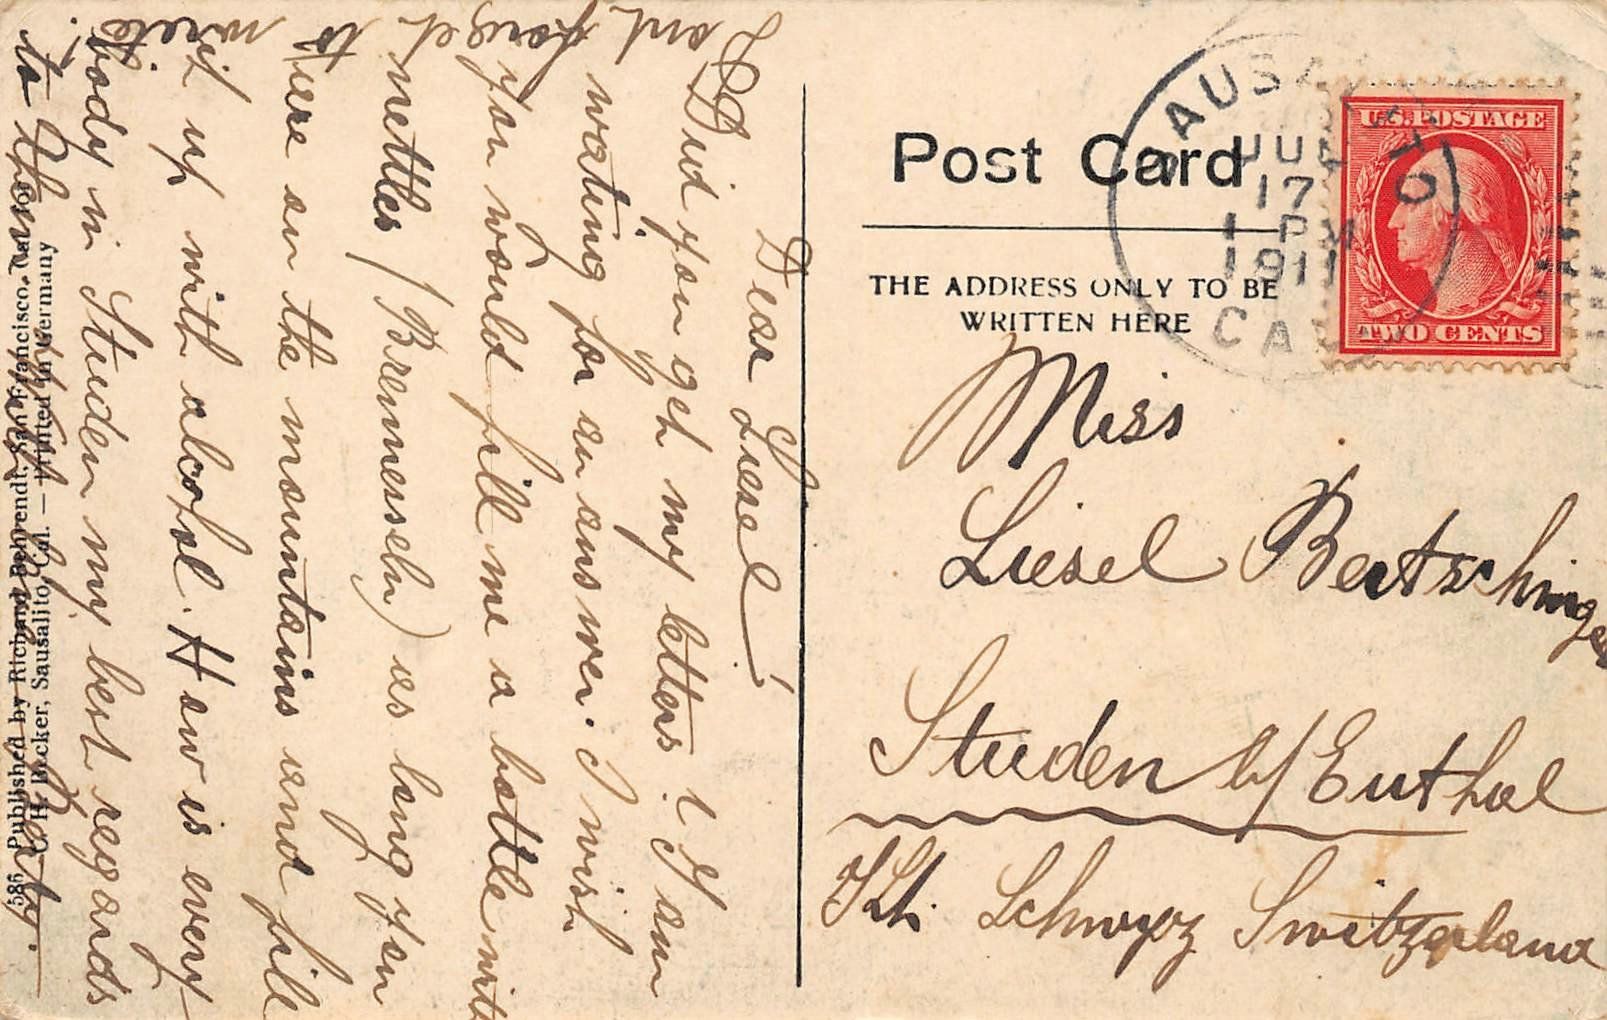 Dear Liesel!
Did you get my letters? I am
waiting for an answer. I wish
you would fill me a bottle with
nettles (Brennesseln) as long you
were on the mountains and fill
it up with alcohol. How is every
body in Studen my best regards
to them
Dont forget to
write
585 Published by Richard Behrendt, San Francisco.
C. H. Becker, Sausalito, Cal. — Printed in Germany
Post Card
THE ADDRESS ONLY TO BE
WRITTEN HERE
SAUSALITO
JUL
17
1 PM
1911
CAL
U.S. POSTAGE
TWO CENTS
Miss
Liesel Bertschinger
Studen b/ Euthal
Kt. Schwyz Switzerland